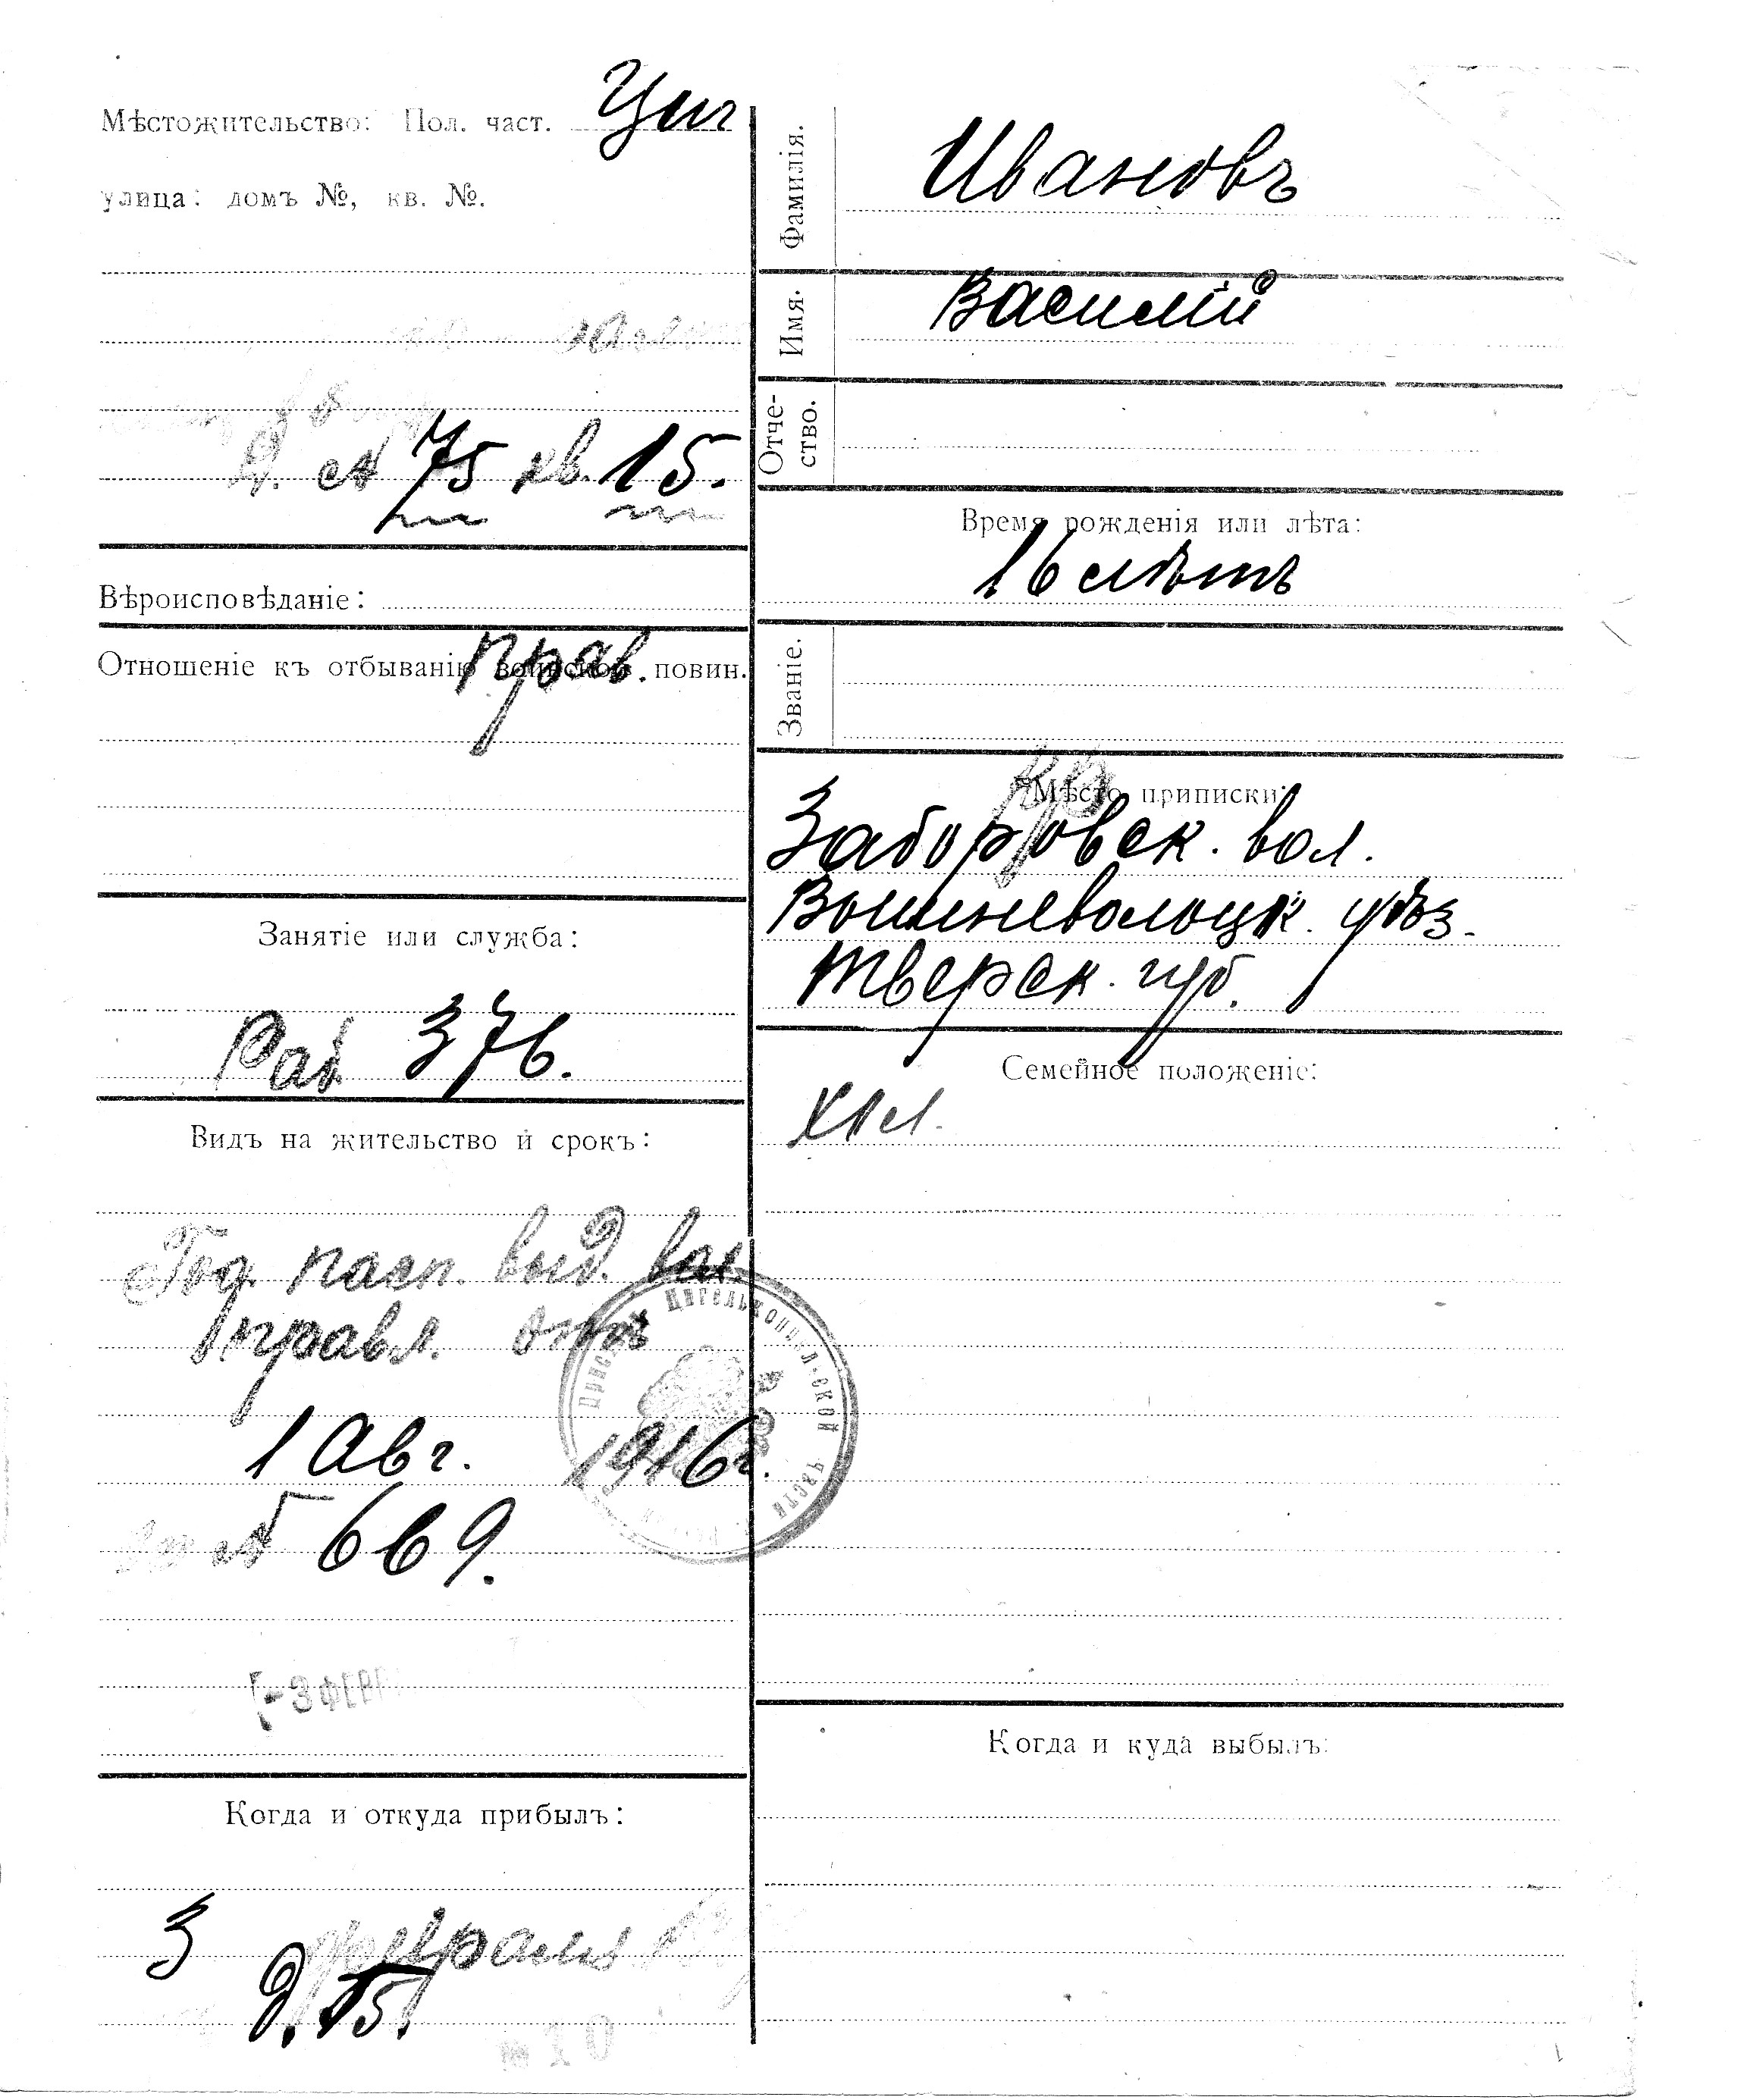 Мѣстожительство: Пол. част. Циг
улица: домъ №, кв. №.
д. № 75 кв. 15.
Вѣроисповѣданіе:
прав.
Отношеніе къ отбыванію воинской повин.
Занятіе или служба:
Раб 376.
Видъ на жительство и срокъ:
Год. пасп. выд. вол.
правл. отъ
1 Авг. 1916 г.
за № 669.
-3 ФЕВР
Когда и откуда прибылъ:
3 февраля
Фамилія. Ивановъ
Имя. Василій
Отче-
ство.
Время рожденія или лѣта:
16 лѣтъ
Званіе.
кр
Мѣсто приписки:
Заборовск. вол.
Вышневолоцк. уѣз.
Тверск. губ.
Семейное положеніе:
хол.
Цигелькоппельской части
Когда и куда выбылъ: